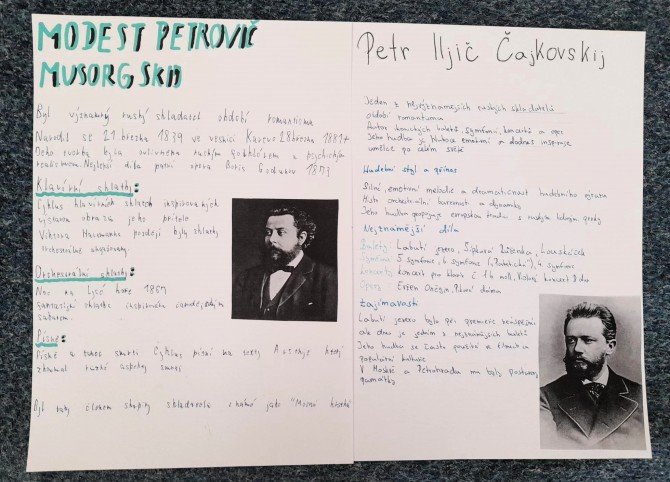 MODEST PETROVIČ
MUSORGSKIJ
Byl významný ruský skladatel období romantismu
Narodil se 21 března 1839 ve vesnici Karevo 28 března 1881+
Jeho tvorba byla ovlivněna ruským folklórem a psychickým
realismem. Nejlepší díla patří opera Boris Godunov 1873
Klavírní skladby:
Cyklus klavírních skladeb inspirovaných
výstavou obrazů jeho přítele
Viktora Hartmanna později byly skladby
orchestrálně
Orchestrální skladby:
Noc na Lysé hoře 1867
fantazijní skladba inspirovaná čarodějským
sabatem.
Písně:
Písně a tance smrti Cyklus písní na texty
zkoumal různé aspekty smrti
Byl taky členem skupiny skladatelů známé jako "Mocná hrstka"
Petr Iljič Čajkovskij
Jeden z nejvýznamnějších ruských skladatelů
období romantismu
Autor ikonických baletů, symfonií, koncertů a oper
Jeho hudba je hluboce emotivní a dodnes inspiruje
umělce po celém světě
Hudební styl a přínos
Silné, emotivní melodie a dramatičnost hudebního výrazu
orchestrální barevnost a dynamika
Jeho hudba propojuje evropskou tradici s ruskými lidovými prvky
Nejznámější díla
Balety: Labutí jezero, Šípková Růženka, Louskáček
Symfonie: 5 symfonie, 6 symfonie ("Patetická"), 4 symfonie
Koncerty: koncert pro klavír č. 1 b moll, Violový koncert D dur
Opery: Evžen Oněgin, Piková dáma
Zajímavosti
Labutí jezero bylo při premiéře neúspěšné
ale dnes je jedním z nejznámějších baletů
Jeho hudba se často používá ve filmech a
populární kultuře
V Moskvě a Petrohradu mu byly postaveny
památky